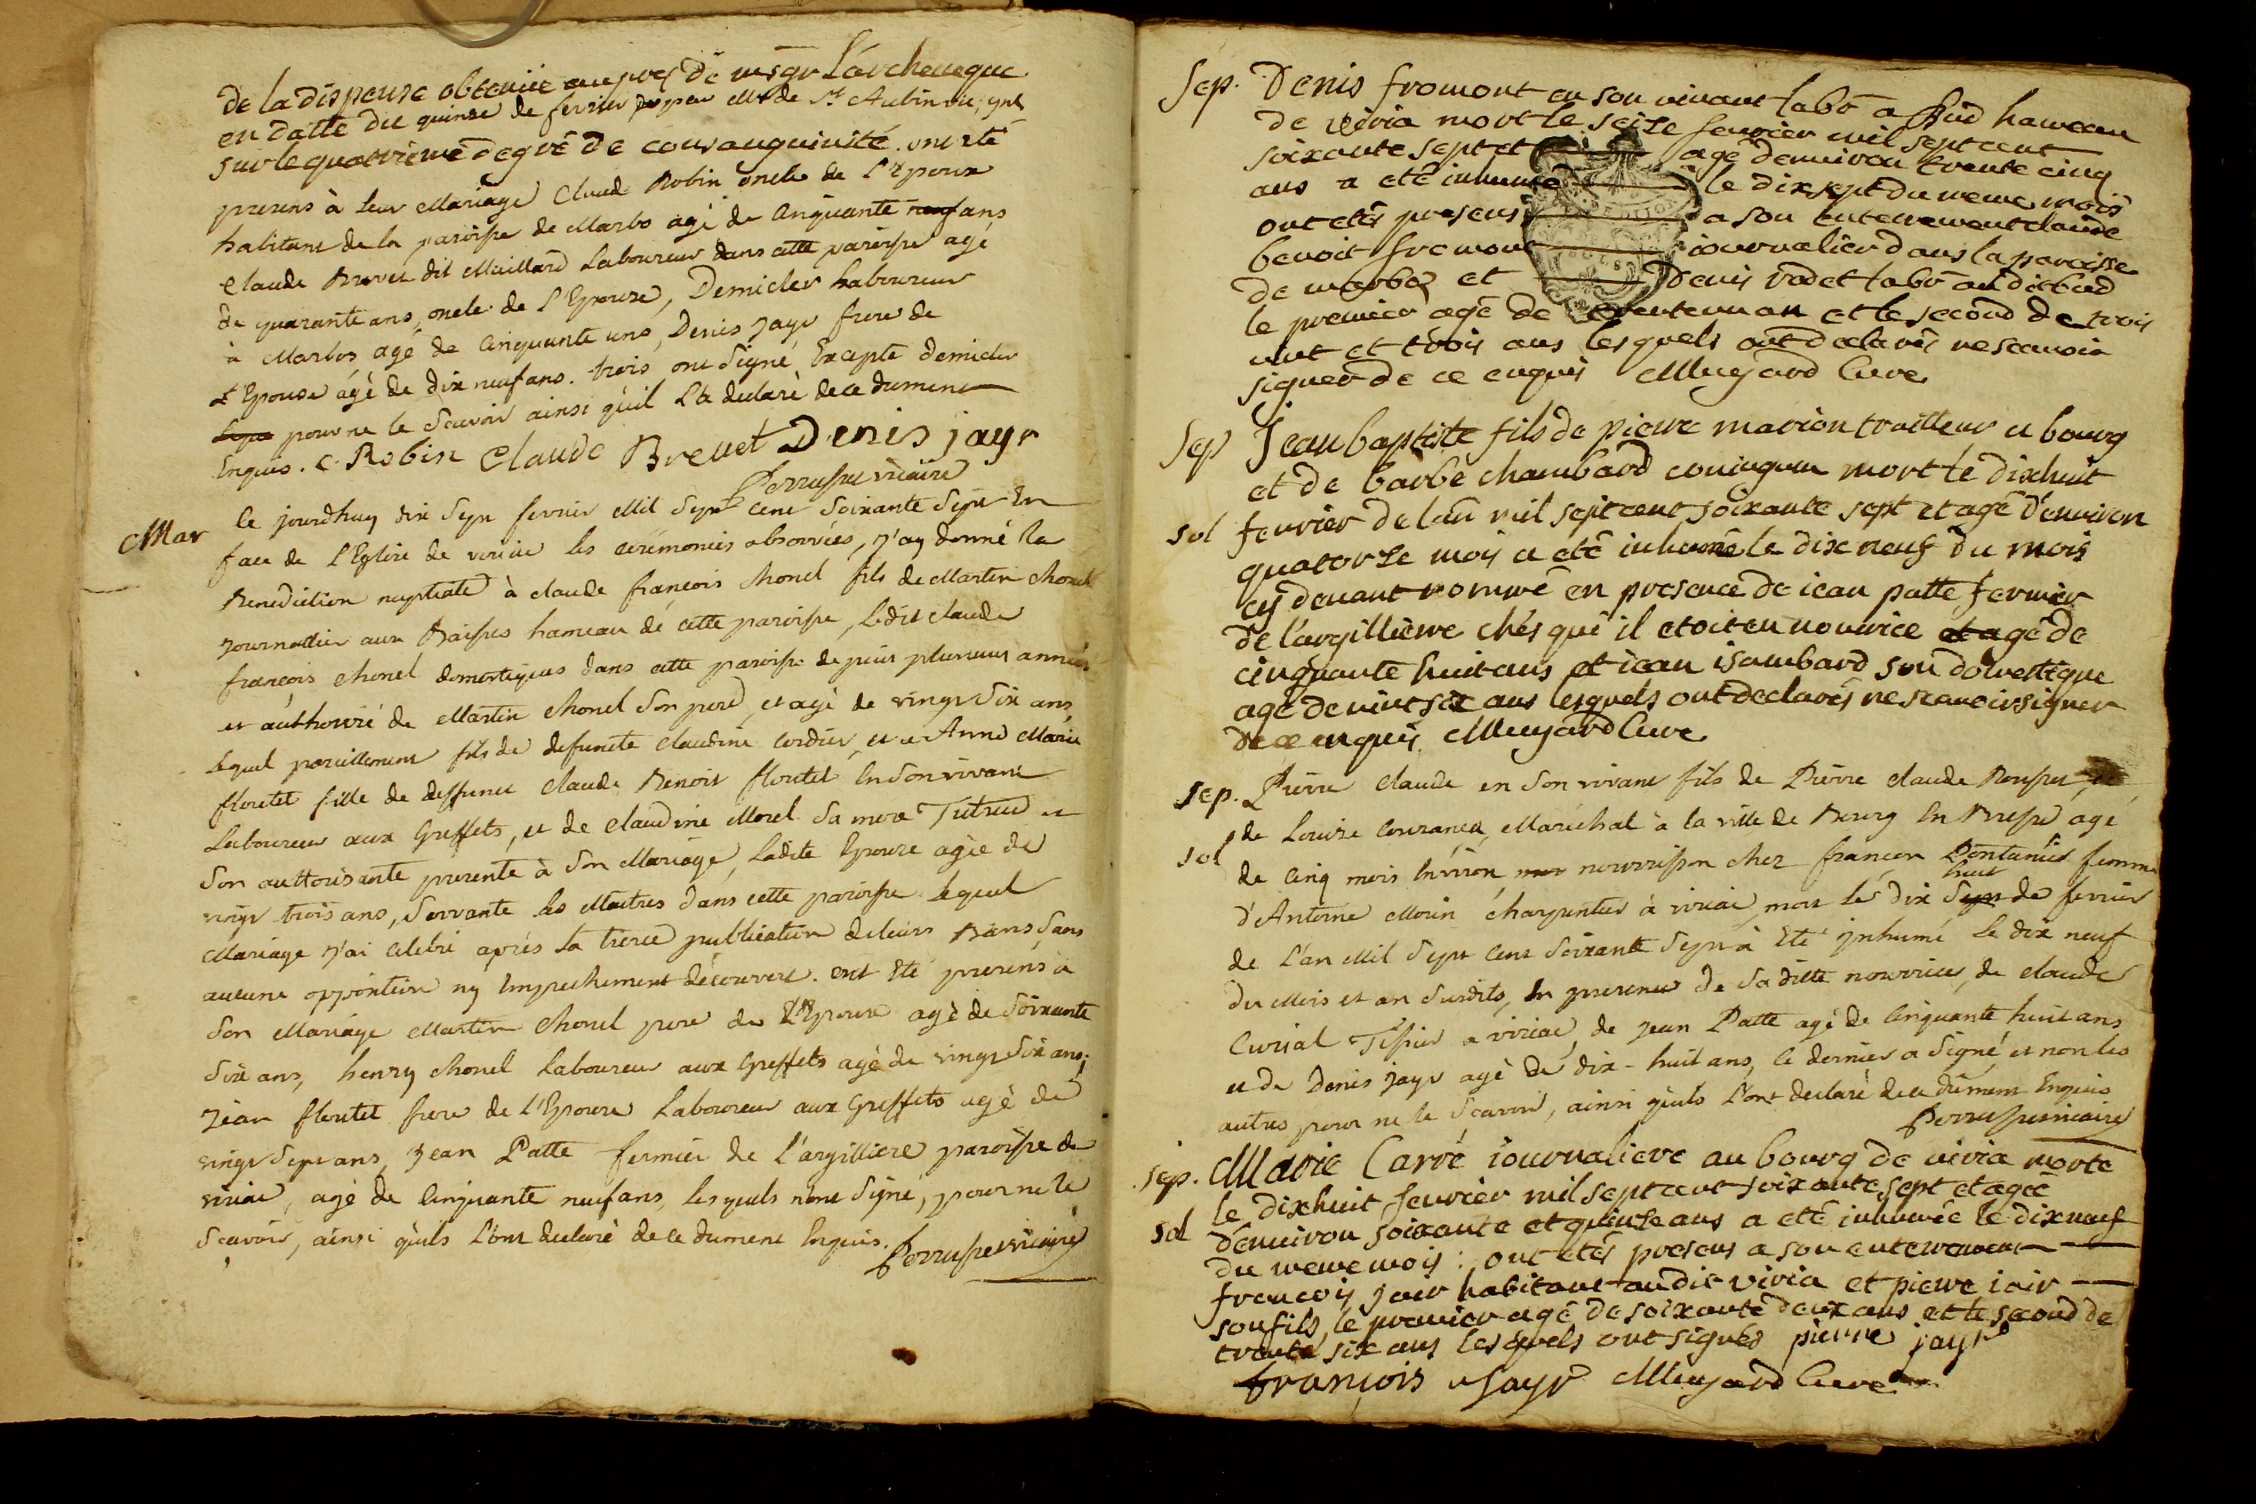 de la dispense obtenüe aupres de msgr L'archeveque
en datte du quinse de fevrier par mr de St Aubin
sur le quatrieme degré de consanguinité. ont eté
presens à leur Mariage Claude Robin oncle de L'Epoux
habitant de la paroisse de Marbo agé de Cinquante neuf ans
Claude Brevet dit Maillard Laboureur dans cette paroisse agé
de quarante ans, oncle de L'Epouse, Demicler Laboureur
à Marbos agé de Cinquante ans, Denis jayr frere de
L'Epouse agé de dix neuf ans. trois ont Signé, Excepté demicler
pour ne le Scavoir ainsi qu'il L'a declaré de ce dument
Enquis. C. Robin Claude Brevet Denis jayr
Perrusset vicaire
Mar
Ce jourdhuy dix Sept fevrier Mil Sept Cent Soixante Sept En
face de L'Eglise de viriac les cérémonies observées, j'ay donné la
Benediction nuptiale à claude françois Chonel fils de Martin Chonel
journallier aux Baisses hameau de cette paroisse, Ledit claude
françois Chonel domestiques dans cette paroisse depuis plusieurs années
et authorisé de Martin Chonel Son pere, et agé de vingt Six ans
Lequel pareillement fils de defunte Claudine Cordier, et a Anne Marie
floutet fille de deffunct Claude Benoit floutet En Son vivant
Laboureur aux Greffets, et de claudine Morel Sa mere Tutrice et
Son authorisante presente à Son Mariage, Ladite Epouse agée de
vingt trois ans, Servante les Maitres dans cette paroisse. Lequel
Mariage j'ai celebré aprés la tierce publication de leurs Bans Sans
aucune opposition ny Empechement découvert. ont Eté presens à
Son Mariage Martin Chonel pere de L'Epoux agé de Soixante
Six ans, henry Chonel Laboureur aux Greffets agé de vingt Six ans,
Jean floutet frere de L'Epouse Laboureur aux Greffets agé de
vingt Sept ans, Jean Patte fermier de L'argilliere paroisse de
viriac, agé de Cinquante neuf ans, lesquels n'ont Signé, pour ne le
Scavoir, ainsi qu'ils L'ont declaré de ce dument Enquis.
Perrusset vicaire
Sep. Denis fromont en son vivant labr a fud hameau
de viria mort le seize fevrier mil septcent
soixante sept et agé denviron trente cinq
ans a eté inhumé le dixsept du meme mois
ont etés presens a son enterrement claude
benoit fromont journalier dans la paroisse
de marboz et Denis vadet labr audit fud
le premier agé de trente un an et le second de trois
vint et trois ans lesquels ont declarés ne scavoir
signer de ce enquis Mugard Cure
Sep Jean baptiste fils de pierre marion trailleur a bourg
et de barbe chambard coniugum mort le dixhuit
sol fevrier de l'an mil septcent soixante sept et agé d'environ
quatorze mois a eté inhumé le dix neuf du mois
cy devant nommé en presence de iean patte fermier
de l'argillierre chés qui il etoit en nourrice et agé de
cinquante huit ans et iean isambard son domestique
agé de vint six ans lesquels ont declarés ne scavoir signer
de ce enquis. Mugard Cure
sep. Pierre Claude en Son vivant fils de Pierre Claude et
de Louise, Maréchal à la ville de Bourg En Bresse, agé
sol de Cinq mois Environ, nourrisson chez françon femme
d'Antoine Morin charpentier à viriac mort le dix Sept huit de fevrier
de L'an Mil Sept Cent Soixante Sept à Eté inhumé Le dix neuf
du Mois et an Susdits, En presence de Sa ditte nourrice, de claude
Curial Tissier a viriac, de jean Patte agé de Cinquante huit ans
et de Denis jayr agé de dix-huit ans, Ce dernier a Signé, et non les
autres pour ne le Scavoir, ainsi qu'ils L'ont declaré de ce dument Enquis
Perrusset vicaire
sep. Marie Carré iournaliere au bourg de viria morte
le dixhuit fevrier mil septcent soixante sept et agée
sol denviron soixante et quinze ans a eté inhumée le dixneuf
du meme mois : ont etés presens a son enterrement
françois jair habitant audit viria et pierre iair
son fils, le premier agé de soixante deux ans et le second de
trente six ans lesquels ont signés pierre jayr
françois Jayr Mugard Cure